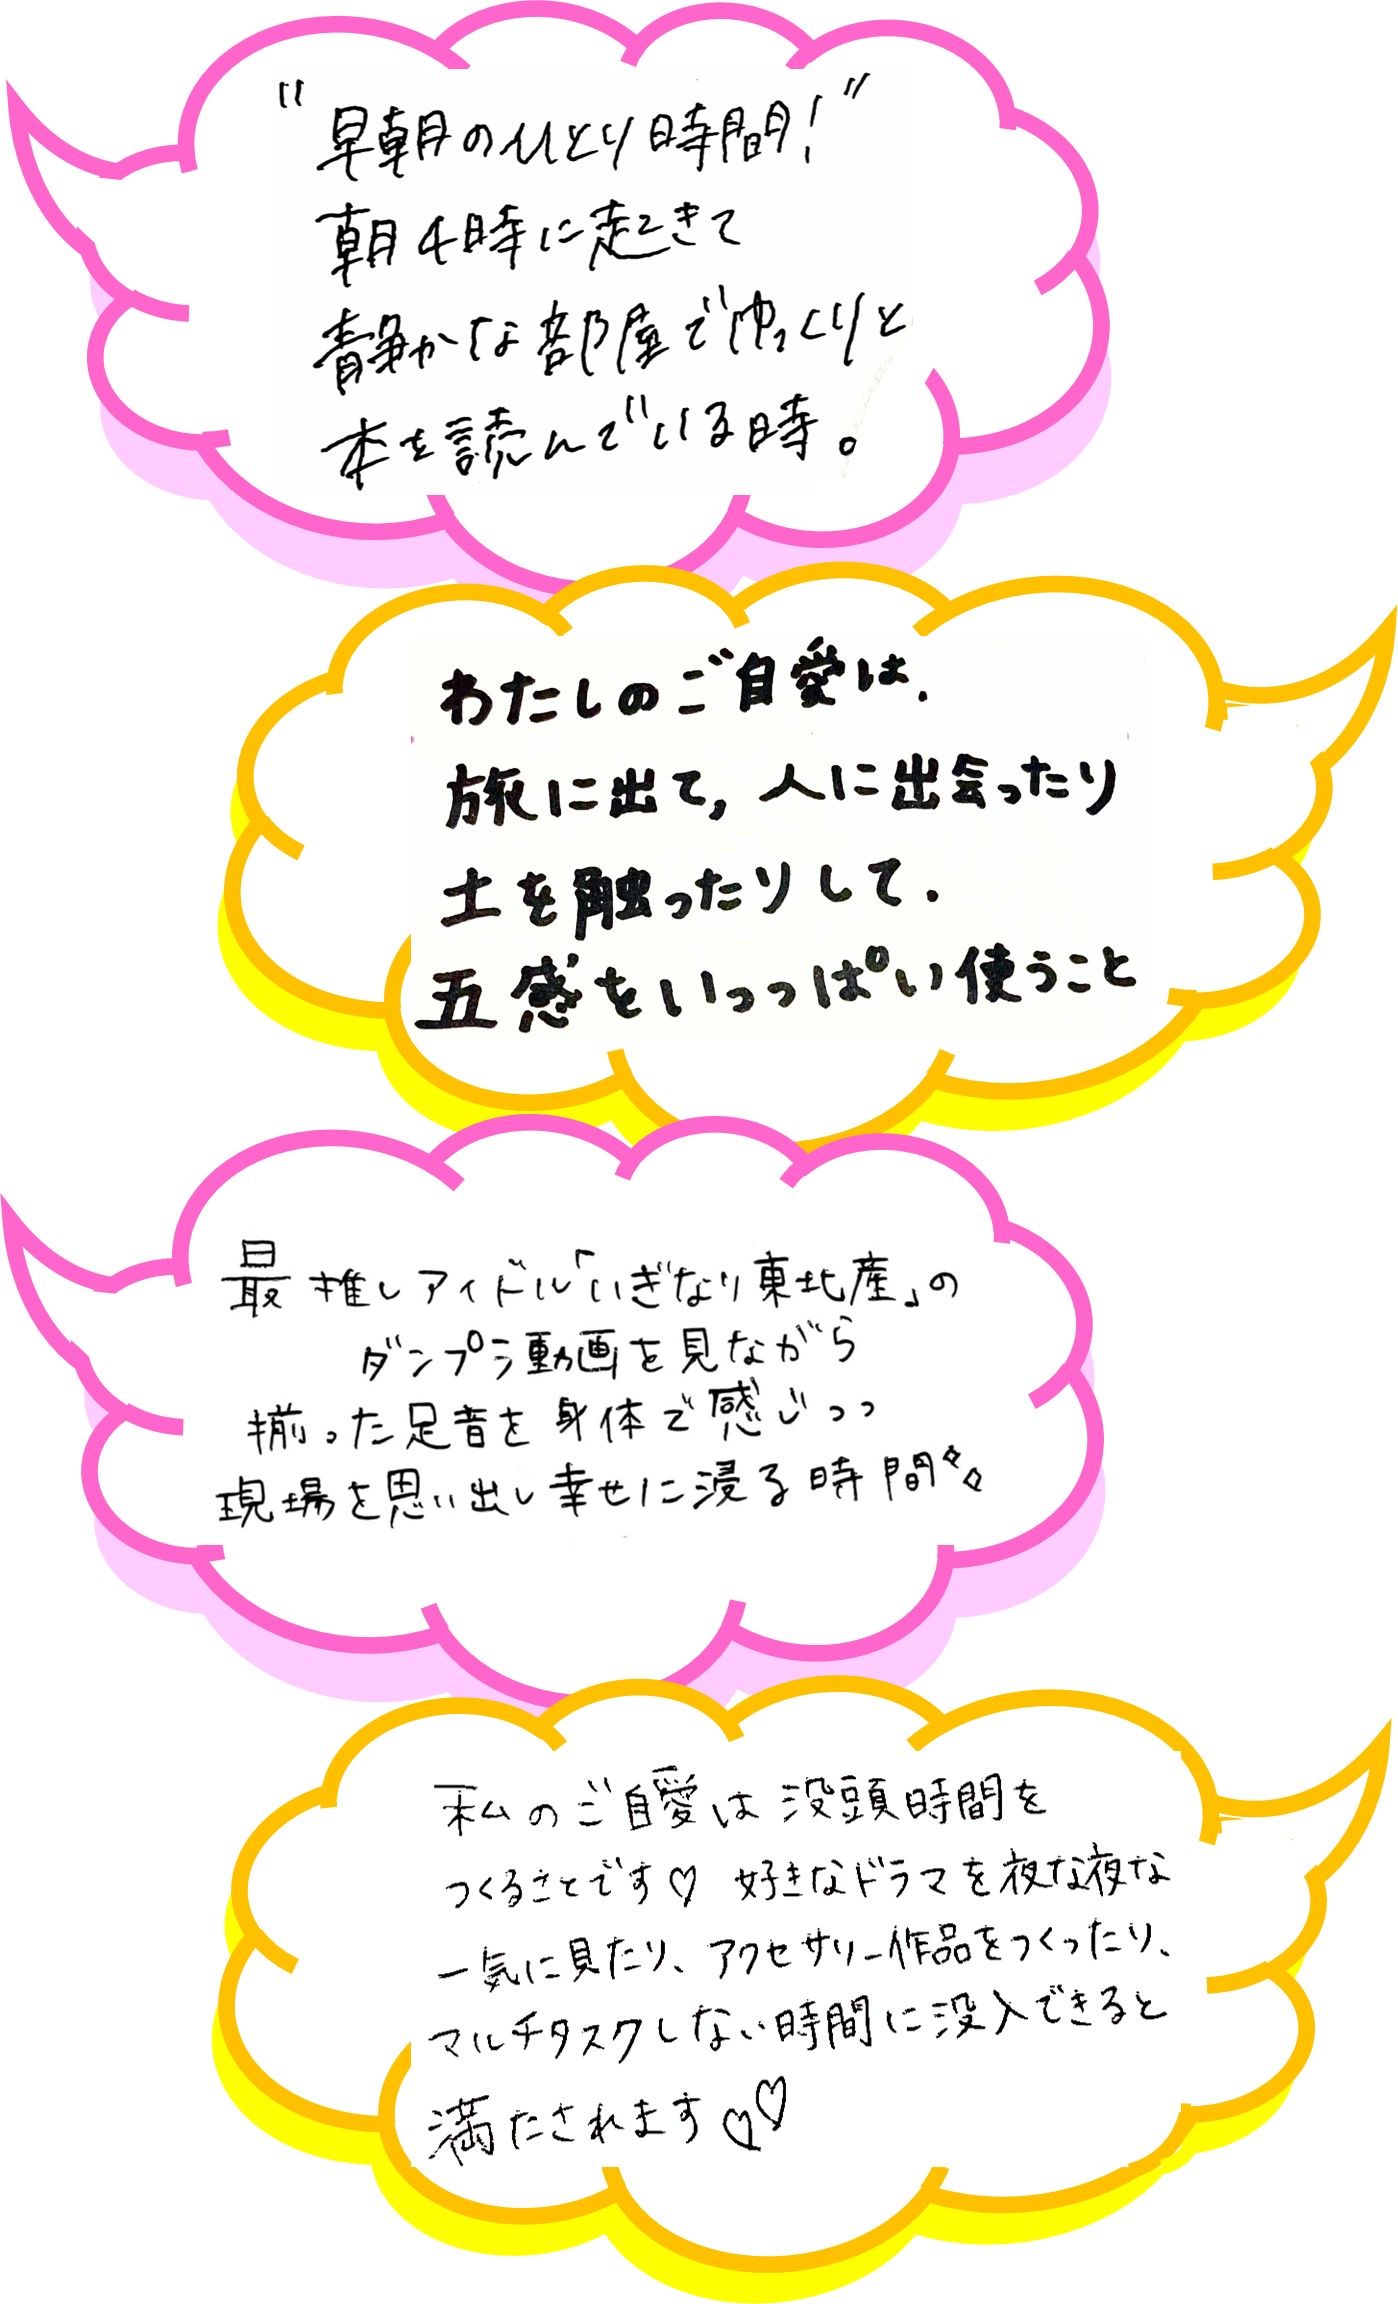 "早朝のひとり時間!"
朝4時に起きて
静かな部屋でゆっくりと
本を読んでいる時。
わたしのご自愛は、
旅に出て,人に出会ったり
土を触ったりして、
五感をいっっぱい使うこと
最推しアイドル「いぎなり東北産」の
ダンプラ動画を見ながら
揃った足音を身体で感じつつ
現場を思い出し幸せに浸る時間
私のご自愛は没頭時間を
つくることです♡ 好きなドラマを夜な夜な
一気に見たり、アクセサリー作品をつくったり、
マルチタスクしない時間に没入できると
満たされます♡♡